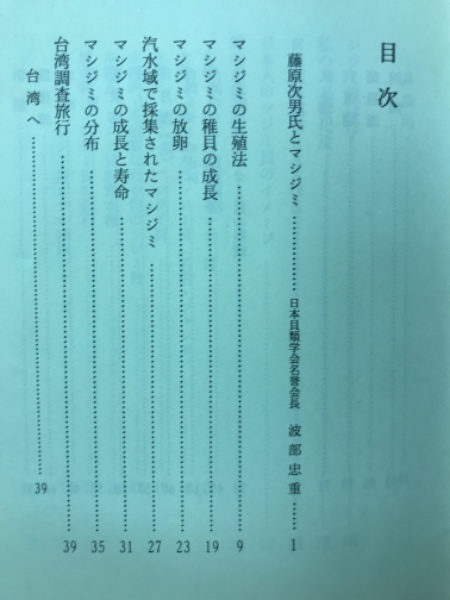 目次
藤原次男氏とマシジミ………………日本貝類学会名誉会長 波部忠重……1
マシジミの生殖法………………9
マシジミの稚貝の成長………………19
マシジミの放卵………………23
汽水域で採集されたマシジミ………………27
マシジミの成長と寿命………………31
マシジミの分布………………35
台湾調査旅行………………39
台湾へ………………39